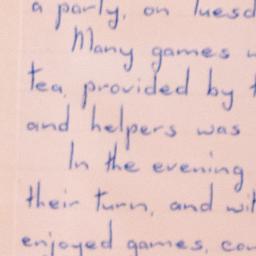 a party, on Tuesd
Many games w
tea, provided by t
and helpers was
In the evening
their turn, and wit
enjoyed games, con